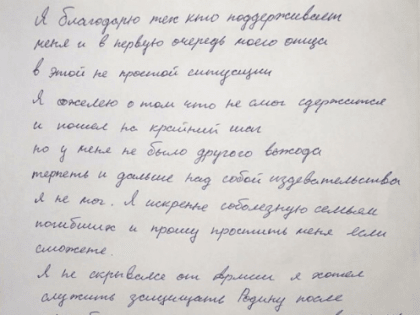 Я благодарю тех кто поддерживает
меня и в первую очередь моего отца
в этой не простой ситуации
Я сожелею о том что не смог сдержатся
и пошел на крайний шаг
но у меня не было другого выхода
терпеть и дальше над собой издевательства
я не мог. Я искренне соболезную семьям
погибших и прошу простить меня если
сможете.
Я не скрывался от армии я хотел
служить защищать Родину после